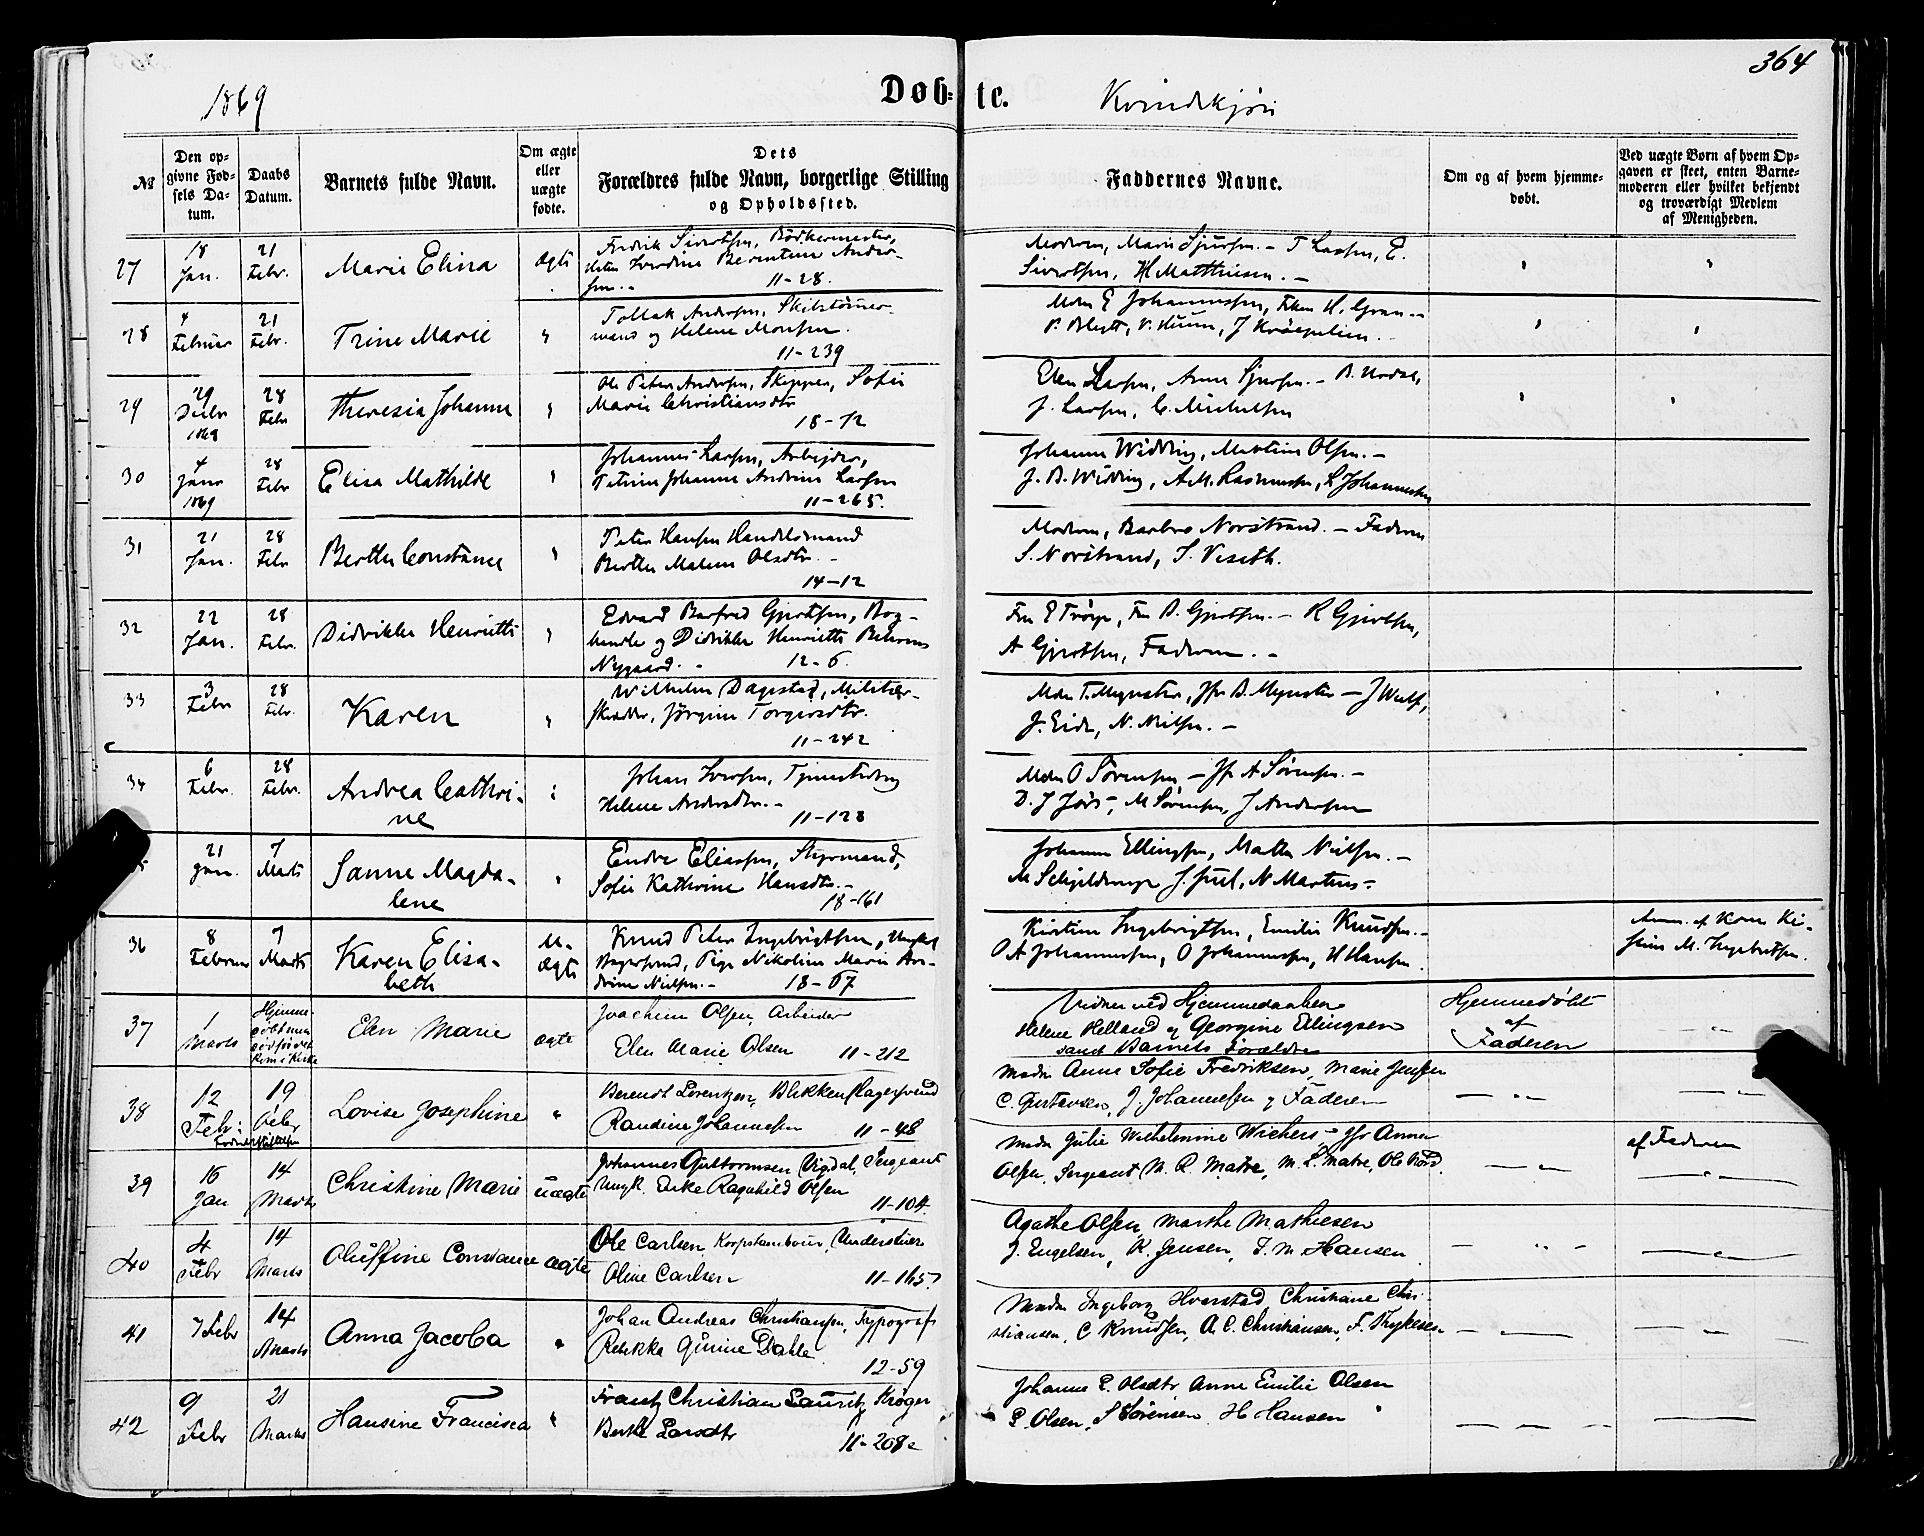 364
1869
Døb=te.
Kvindekjøn
№
Den op-
givne Fød-
sels Da-
tum.
Daabs
Datum.
Barnets fulde Navn.
Om ægte
eller
uægte
fødte.
Dets
Forældres fulde Navn, borgerlige Stilling
og Opholdssted.
Faddernes Navne.
Om og af hvem hjemme-
døbt.
Ved uægte Børn af hvem Op-
gaven er skeet, enten Barne-
moderen eller hvilket bekjendt
og troværdigt Medlem
af Menigheden.
27
18
Jan.
21
Febr.
Marie Elina
ægte
Fredrik Sivertsen, Bødkermester,
Berentine Ander-
sen.-
11-28.
Moderen, Marie Sjursen.- T Larsen, E.
Sivertsen, H Matthiesen.-
28
4
Februar
21
Febr.
Trine Marie
"
Tollak Andersen, Skibstømmer-
mand og Helene Monsen.
11-239
Mdm E Johannessen, Frken H. Gran.-
P. Blytt, V. Huun, J Krøepelien.
29
29
Decbr
1868
28
Febr
Theresia Johanne
"
Ole Peter Andersen, Skipper, Sofie
Marie Christiansdtr
18-12
Elen Larsen, Anne Sjursen.- B. Undal,
J. Larsen, C. Michelsen
30
4
Janr
1869
28
Febr
Elisa Mathilde
"
Johannes Larsen, Arbejder,
Petrine Johanne Andrine Larsen
11-265.
Johanne Widding, Martine Olsen.-
J. B. Widding, A. M. Rasmussen, L Johannessen
31
21
Jan.
28
Febr
Berthe Constance
"
Peter Hansen Handelsmand
Berthe Malene Olsdtr.-
14-12
Moderen, Barbro Norstrand.- Faderen
S. Norstrand, S. Viseth.
32
22
Jan.
28
Febr.
Didrikke Henriette
"
Edvard Barfred Gjertsen, Bog-
handler og Didrikke Henriette Behrens
Nygaard.-
12-6.
Fru E Troye, Fru B. Gjertsen.- R Gjertsen,
A Gjertsen, Faderen.-
33
3
Febr
28
Febr.
Karen
"
Wilhelm Dagestad, Militær-
skrædder, Jørgine Torgersdtr.
11-242
Mdm T. Mynster, Jfr B. Mynster - J Wulf,
J. Eide, N. Nilsen.-
34
6
Febr.
28
Febr.
Andrea Cathri-
ne
"
Johan Iversen, Tjenestedreng
Helene Andersdtr.-
11-128
Mdm O Sørensen - Jfr A Sørensen.-
D. J Jørs-, M Sørensen, J Andersen
21
Jan.
7
Marts
Sanne Magda-
lene
"
Endre Eliassen, Styrmand,
Sofie Kathrine Hansdtr.-
18-161
Johanne Ellingsen, Marthe Nielsen.-
M Schjelderup J. Juul, N Martens-
36
8
Februar
7
Marts
Karen Elisa-
beth
U-
ægte
Knud Peter Ingebrigtsen, Ungkarl
Bagersvend, Pige Nikoline Marie An-
drine Nielsen.-
18-67
Kirstine Ingebrigtsen, Emilie Knudsen.-
O A Johannessen, O Johannessen, H Hansen.
Anm. af Kone Ki-
stine M. Ingebrigtsen.
37
1
Marts
Hjemme-
døbt men
død før det
kom i Kirke
Elen Marie
ægte
Joachim Olsen, Arbeider
Elen Marie Olsen
11-212
Vidner ved Hjemmedaaben
Helene Helland og Georgine Elingsen
samt Barnets Forældre
Hjemmedøbt
af
Faderen
- " -
38
12
Febr:
19
Febr
Lovise Josephine
"
Berendt Lorentzen, Blikkenslagersvend
Randine Johannessen
11-48
Mada Anne Sofie Fredriksen, Marie Jensen
C. Gustavsen, J. Johannessen og Faderen
- " -
- " -
39
16
Jan
14
Marts
Christine Marie
uægte
Johannes Guttormsen Vigdal, Sergeant
Ungk. Enke Ragnhild Olsen
11-104.
Mada Julie Wilhelmine Wichers - Jfr Anna
Olsen, Sergeant N. R. Matre, M. L. Matre, Ole Nord.
- " -
af Faderen
- " -
40
4
Febr
14
Marts
Oluffine Constance
ægte
Ole Carlsen, Korpstambour, Understuer
Oline Carlsen
11-165
Agathe Olsen, Marthe Mathiesen
J. Engelsen, K. Jensen, T. M. Hansen
- " -
- " -
41
7 Febr
14
Marts
Anna Jacoba
"
Johan Andreas Christiansen, Typograf
Rebekka Gurine Dahle
12-59
Mada Ingeborg Hverstad Christiane Chri-
stiansen, C Knudsen, A. C. Christiansen, F. Thykesen
- " -
- " -
42
9
Febr
21
Marts
Hansine Francisca
"
Frantz Christian Lauritz Krøger
Berthe Larsdtr
11-208
Johanne P. Olsdtr Anne Emilie Olsen
P. Olsen, S Sørensen, H Hansen
- " -